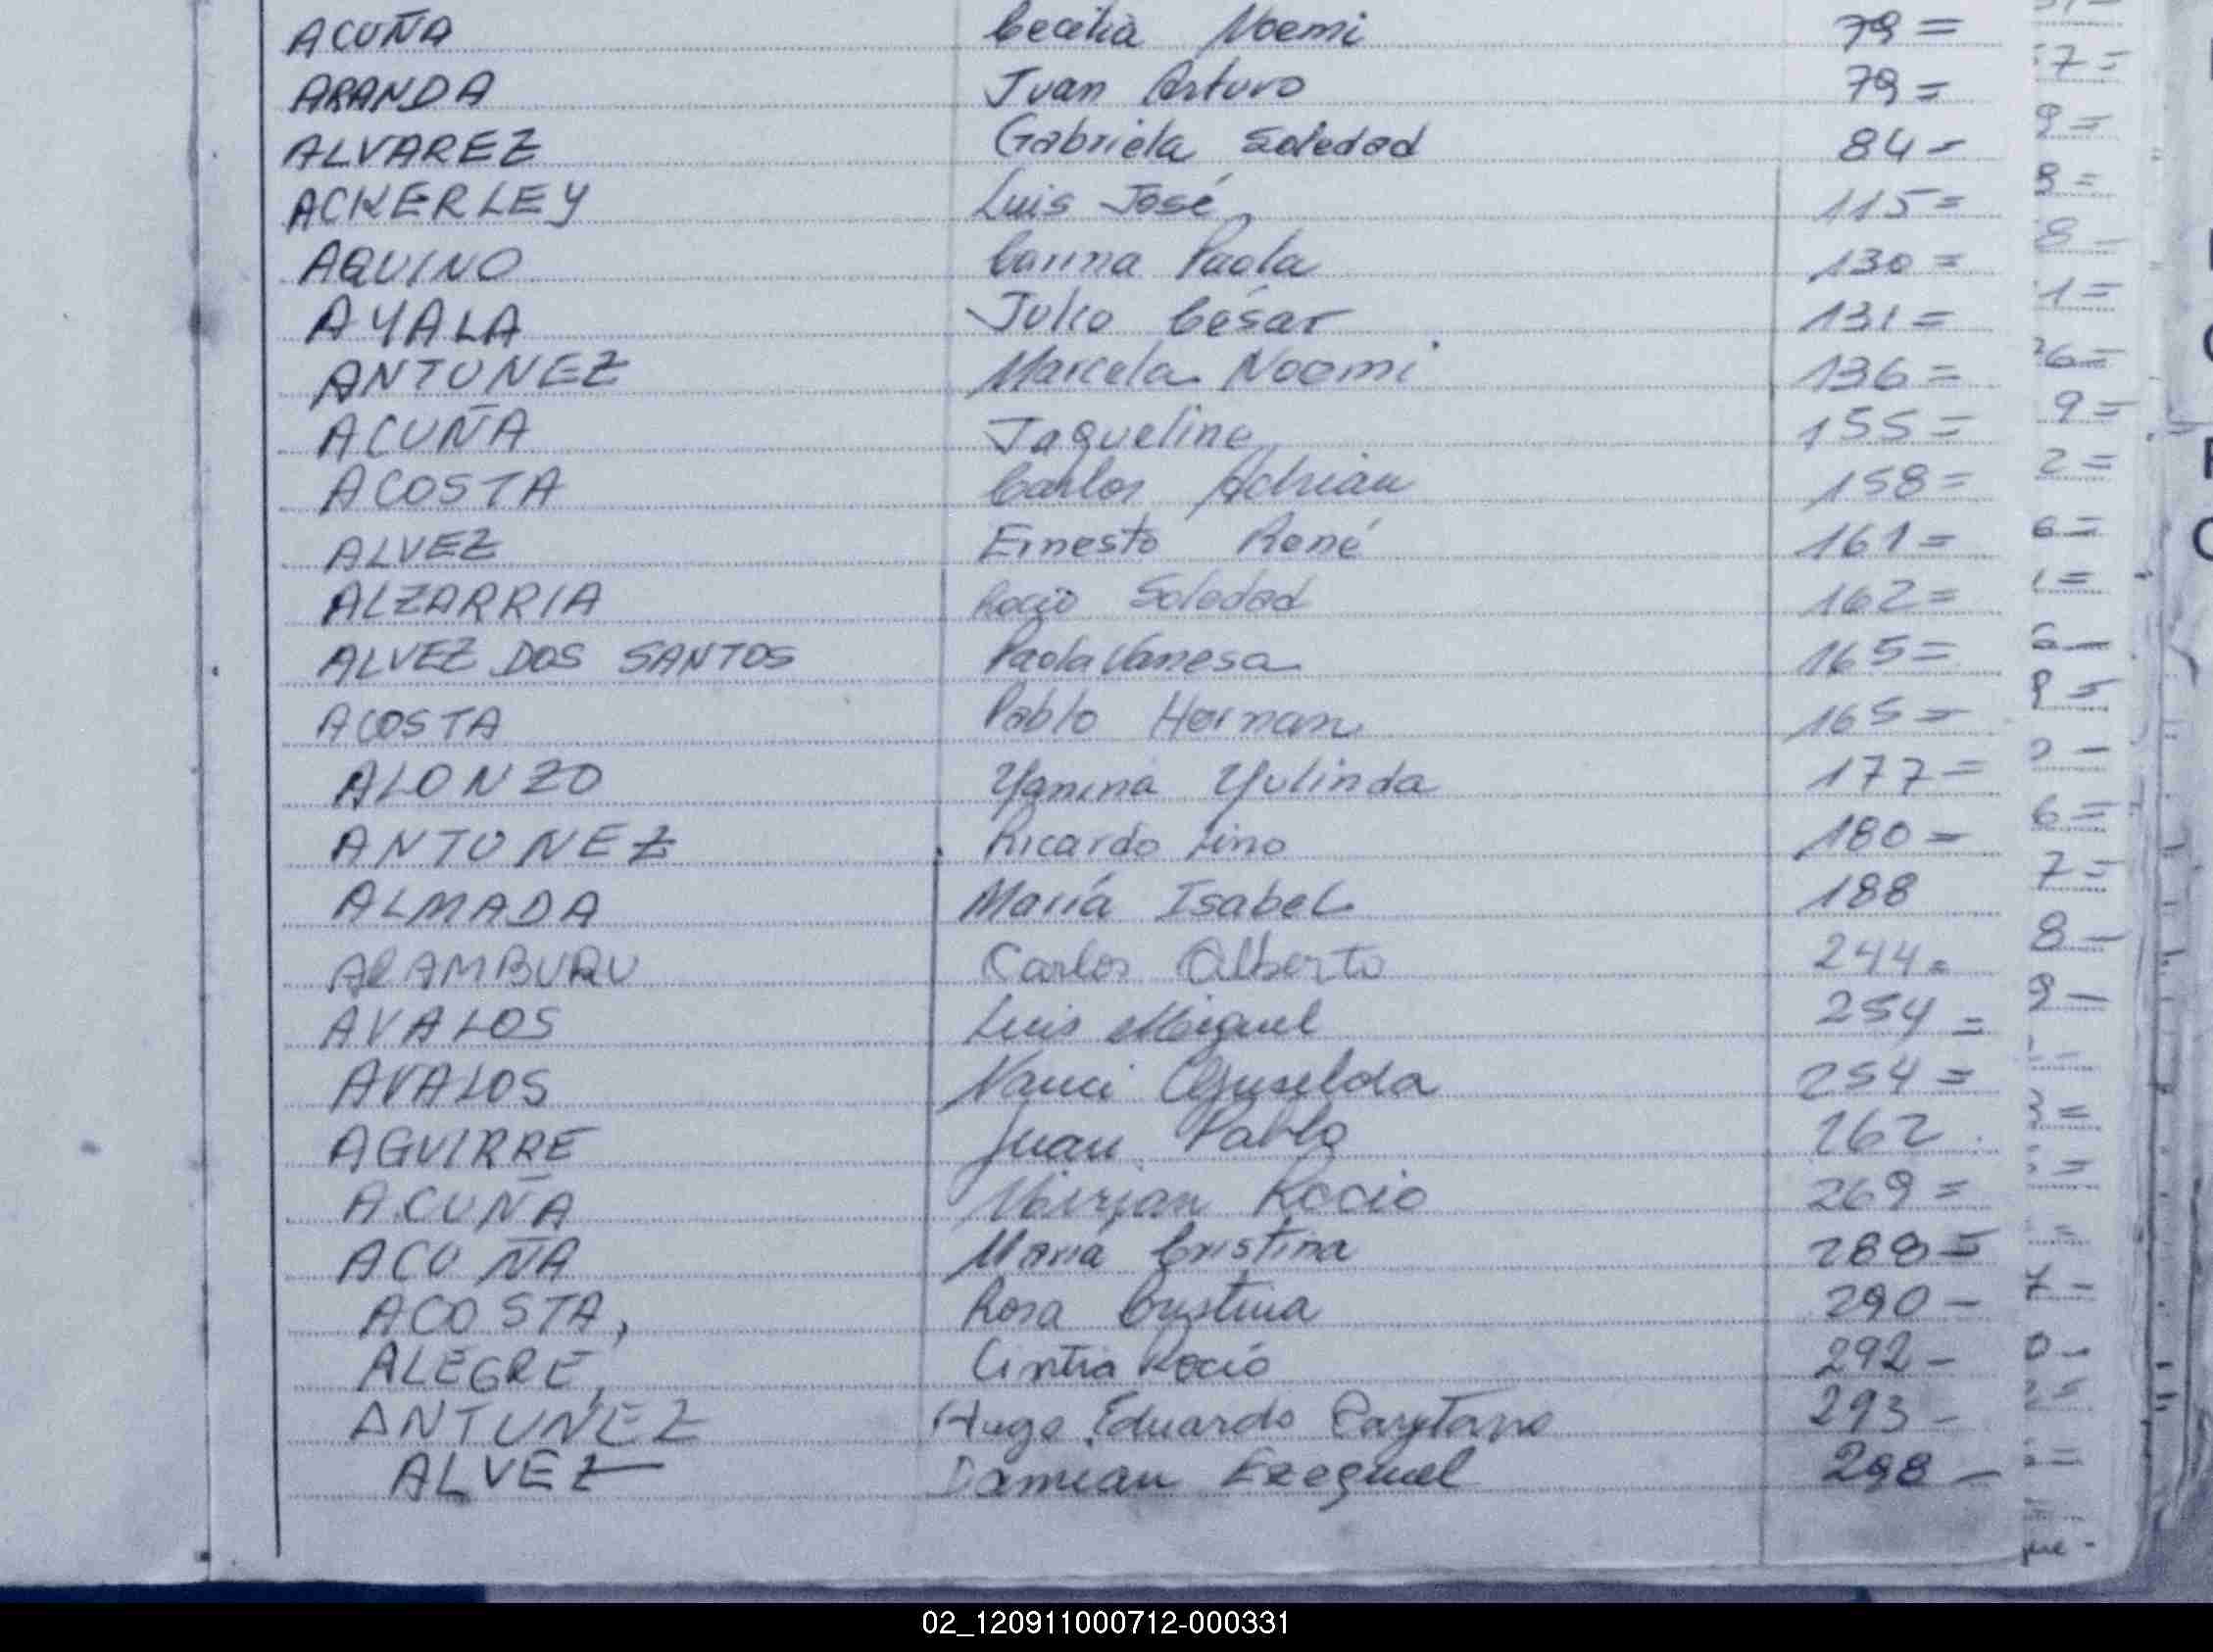 ACUÑA Cecilia Noemi 79=
ARANDA Juan Arturo 79=
ALVAREZ Gabriela Soledad 84-
ACKERLEY Luis José 115=
AQUINO Carina Paola 130=
AYALA Julio César 131=
ANTUNEZ Marcela Noemi 136=
ACUÑA Jaqueline 155=
ACOSTA Carlos Adrian 158=
ALVEZ Ernesto René 161=
ALZARRIA Rocio Soledad 162=
ALVEZ DOS SANTOS Paola Vanesa 165=
ACOSTA Pablo Hernan 165=
ALONZO Yanina Yulinda 177=
ANTUNEZ Ricardo Lino 180=
ALMADA María Isabel 188
ARAMBURU Carlos Alberto 244=
AVALOS Luis Miguel 254=
AVALOS Nanci Griselda 254=
AGUIRRE Juan Pablo 262
ACUÑA Mirian Rocio 269=
ACUÑA María Cristina 289=
ACOSTA, Rosa Cristina 290-
ALEGRE, Cintia Rocio 292-
ANTUNEZ Hugo Eduardo Caytano 293-
ALVEZ Damian Ezequiel 298-
02_120911000712-000331